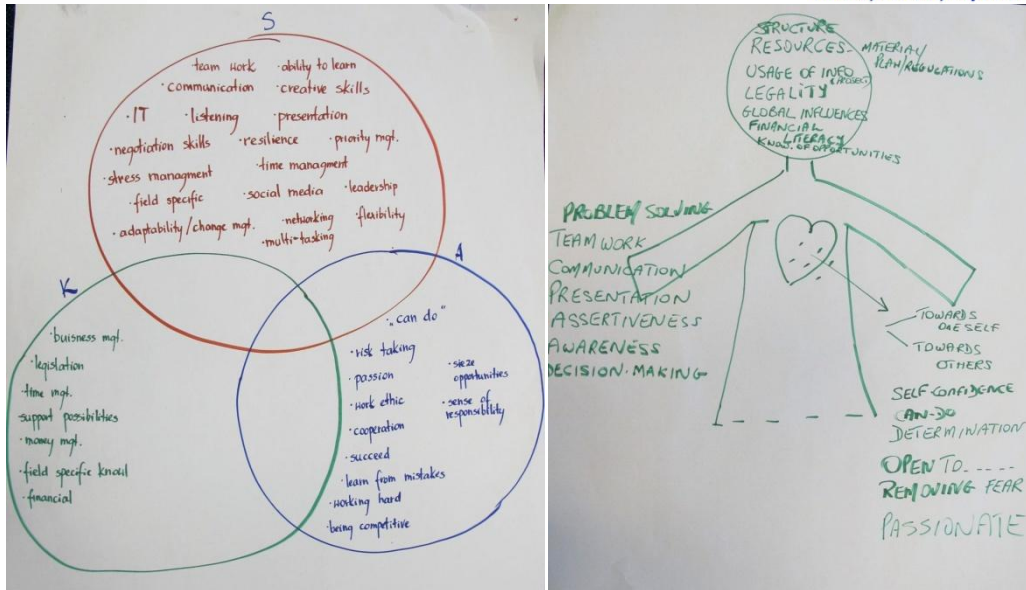 S
team work · ability to learn
· communication · creative skills
· IT · listening · presentation
· negotiation skills · resilience · priority mgt.
· stress managment · time managment
· field specific · social media · leadership
· adaptability/change mgt. · networking · flexibility
· multi-tasking
K
· buisness mgt.
· legislation
· time mgt.
support possibilities
· money mgt.
· field specific knowl
· financial
A
· „can do"
· risk taking
· passion
· work ethic
· cooperation
· succeed
· learn from mistakes
· working hard
· being competitive
· sieze
opportunities
· sense of
responsibility
STRUCTURE
RESOURCES- MATERIAL/
PLAN/REGULATIONS
USAGE OF INFO
LEGALITY
GLOBAL INFLUENCES
FINANCIAL
LITERACY
KNOW. OF OPPORTUNITIES
PROBLEM SOLVING
TEAMWORK
COMMUNICATION
PRESENTATION
ASSERTIVENESS
AWARENESS
DECISION-MAKING
TOWARDS
ONESELF
TOWARDS
OTHERS
SELF-CONFIDENCE
CAN-DO
DETERMINATION
OPEN TO.....
REMOVING FEAR
PASSIONATE